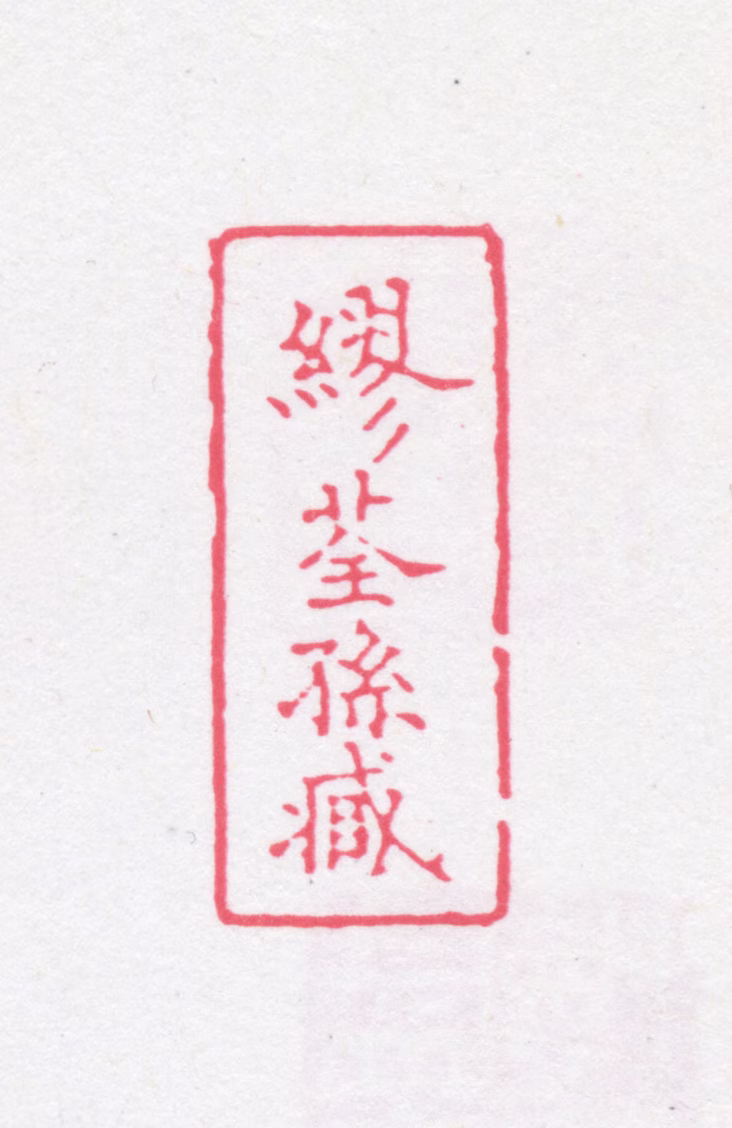 繆荃孫藏